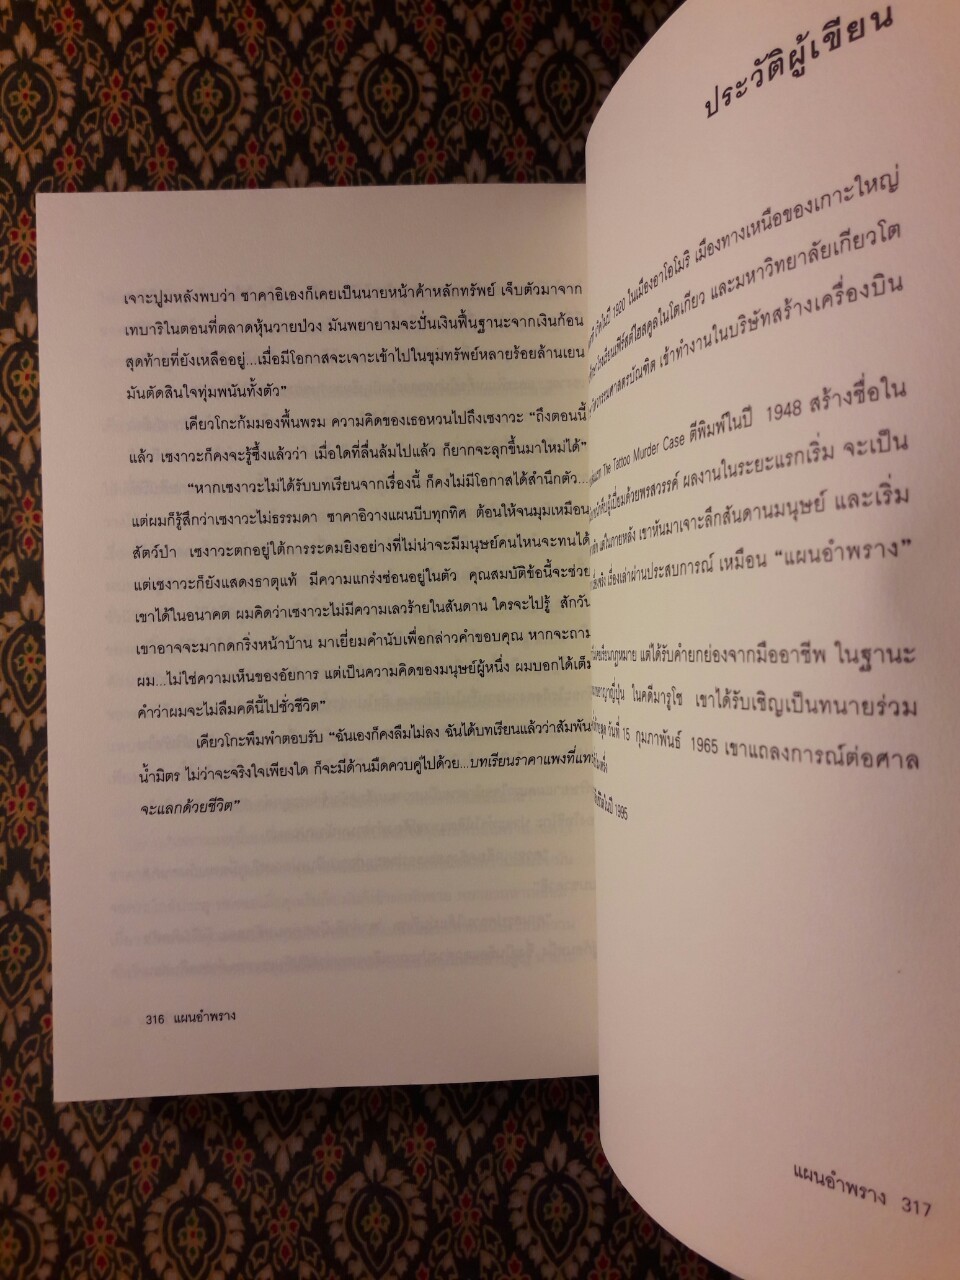 เจาะปูมหลังพบว่า ซาคาอิเองก็เคยเป็นนายหน้าค้าหลักทรัพย์ เจ็บตัวมาจาก
เทบาริในตอนที่ตลาดหุ้นวายป่วง มันพยายามจะปั่นเงินฟื้นฐานะจากเงินก้อน
สุดท้ายที่ยังเหลืออยู่...เมื่อมีโอกาสจะเจาะเข้าไปในขุมทรัพย์หลายร้อยล้านเยน
มันตัดสินใจทุ่มพนันทั้งตัว”
เคียวโกะก้มมองพื้นพรม ความคิดของเธอหวนไปถึงเซงาวะ “ถึงตอนนี้
แล้ว เซงาวะก็คงจะรู้ซึ้งแล้วว่า เมื่อใดที่ลื่นล้มไปแล้ว ก็ยากจะลุกขึ้นมาใหม่ได้”
“หากเซงาวะไม่ได้รับบทเรียนจากเรื่องนี้ ก็คงไม่มีโอกาสได้สำนึกตัว...
แต่ผมก็รู้สึกว่าเซงาวะไม่ธรรมดา ซาคาอิวางแผนบีบทุกทิศ ต้อนให้จนมุมเหมือน
สัตว์ป่า เซงาวะตกอยู่ใต้การระดมยิงอย่างที่ไม่น่าจะมีมนุษย์คนไหนจะทนได้
แต่เซงาวะก็ยังแสดงธาตุแท้ มีความแกร่งซ่อนอยู่ในตัว คุณสมบัติข้อนี้จะช่วย
เขาได้ในอนาคต ผมคิดว่าเซงาวะไม่มีความเลวร้ายในสันดาน ใครจะไปรู้ สักวัน
เขาอาจจะมากดกริ่งหน้าบ้าน มาเยี่ยมคำนับเพื่อกล่าวคำขอบคุณ หากจะถาม
ผม...ไม่ใช่ความเห็นของอัยการ แต่เป็นความคิดของมนุษย์ผู้หนึ่ง ผมบอกได้เต็ม
คำว่าผมจะไม่ลืมคดีนี้ไปชั่วชีวิต”
เคียวโกะพึมพำตอบรับ “ฉันเองก็คงลืมไม่ลง ฉันได้บทเรียนแล้วว่าสัมพัน
น้ำมิตร ไม่ว่าจะจริงใจเพียงใด ก็จะมีด้านมืดควบคู่ไปด้วย...บทเรียนราคาแพงที่แทบ
จะแลกด้วยชีวิต”
316 แผนอำพราง
ประวัติผู้เขียน
เกิดในปี 1920 ในเมืองอาโอโมริ เมืองทางเหนือของเกาะใหญ่
ในโตเกียว และมหาวิทยาลัยเกียวโต
เข้าทำงานในบริษัทสร้างเครื่องบิน
The Tattoo Murder Case ตีพิมพ์ในปี 1948 สร้างชื่อใน
ด้วยพรสวรรค์ ผลงานในระยะแรกเริ่ม จะเป็น
แต่ในภายหลัง เขาหันมาเจาะลึกสันดานมนุษย์ และเริ่ม
เรื่องเล่าผ่านประสบการณ์ เหมือน “แผนอำพราง”
แต่ได้รับคำยกย่องจากมืออาชีพ ในฐานะ
ในคดีมารูโซ เขาได้รับเชิญเป็นทนายร่วม
วันที่ 15 กุมภาพันธ์ 1965 เขาแถลงการณ์ต่อศาล
ในปี 1995
แผนอำพราง 317